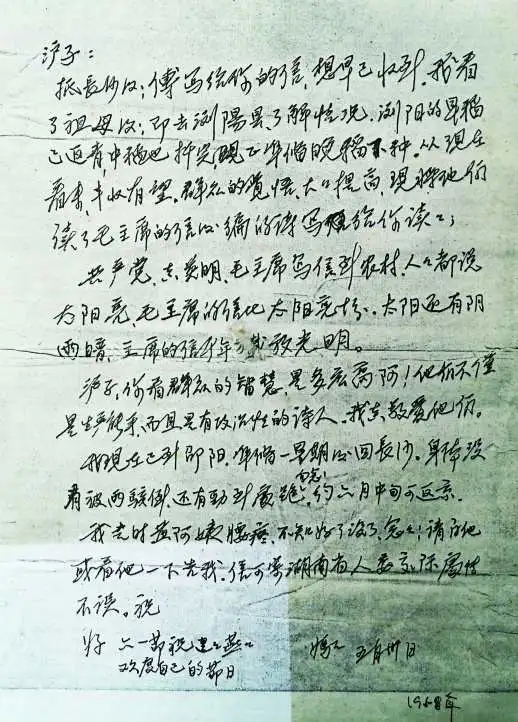 沪子：
抵長沙后，傅写给你的信，想早已收到。我看
了祖母后，即去浏陽县，了解情况。浏阳的早稻
已返青，中稻也插完，现正準备晚稻下种。从现在
看来，丰收有望。群众的觉悟，大大提高，现将他们
读了毛主席的信后编的诗写给你读读：
共产党，真英明，毛主席写信到农村，人人都说
太阳亮，毛主席的信比太阳亮十分。太阳还有阴
雨暗，主席的信年年放光明。
沪子，你看群众的智慧，是多么高阿！他们不仅
是生产能手，而且是有政治性的诗人。我真敬爱他们。
我现在已到邵阳，準备一星期后回長沙。身体没
有被雨駭倒，还有勁到處跑，勿念！约六月中旬可返京。
我走时 阿姨腰痛，不知好了没有，念念！请问他
或看他一下告我。信可寄湖南省人委交际處
不误。祝
好 六一節祝建建燕燕 媽媽 五月卅日
欢度自己的節日
19 年